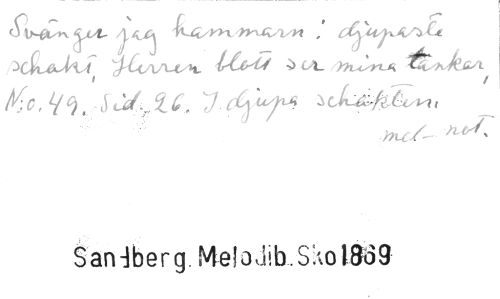 Svänger jag hammarn i djupaste
schakt, Herren blott ser mina tankar,
N:o. 49. Sid. 26. I djupa schakten.
mel-not.
Sandberg. Melodib. Sko 1869